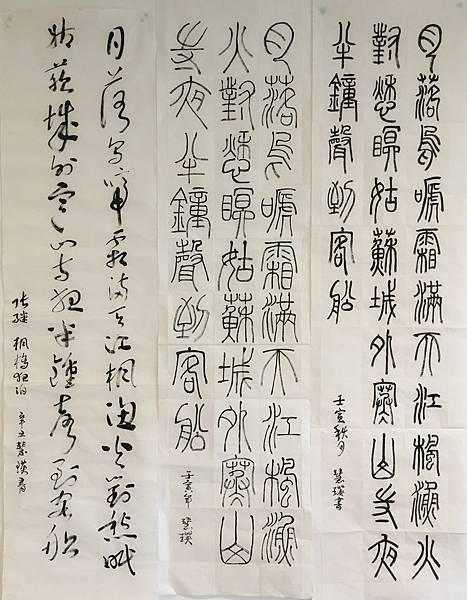 月落烏啼霜滿天江楓漁火
對愁眠姑蘇城外寒山寺夜
半鐘聲到客船
壬寅秋月 慧瑛書
月落烏啼霜滿天江楓漁
火對愁眠姑蘇城外寒山
寺夜半鐘聲到客船
壬寅年 慧瑛
月落烏啼霜滿天江楓漁火對愁眠
姑蘇城外寒山寺夜半鐘聲到客船
張繼 楓橋夜泊 辛丑慧瑛書